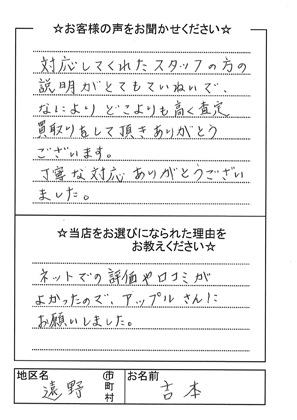 ☆お客様の声をお聞かせください☆
対応してくれたスタッフの方の
説明がとてもていねいで、
なにより どこよりも高く査定、
買取りをして頂きありがとう
ございます。
丁寧な対応ありがとうござい
ました。
☆当店をお選びになられた理由を
お教えください☆
ネットでの評価や口コミが
よかったので、アップルさんに
お願いしました。
地区名
遠野
市
町
村
お名前
吉本